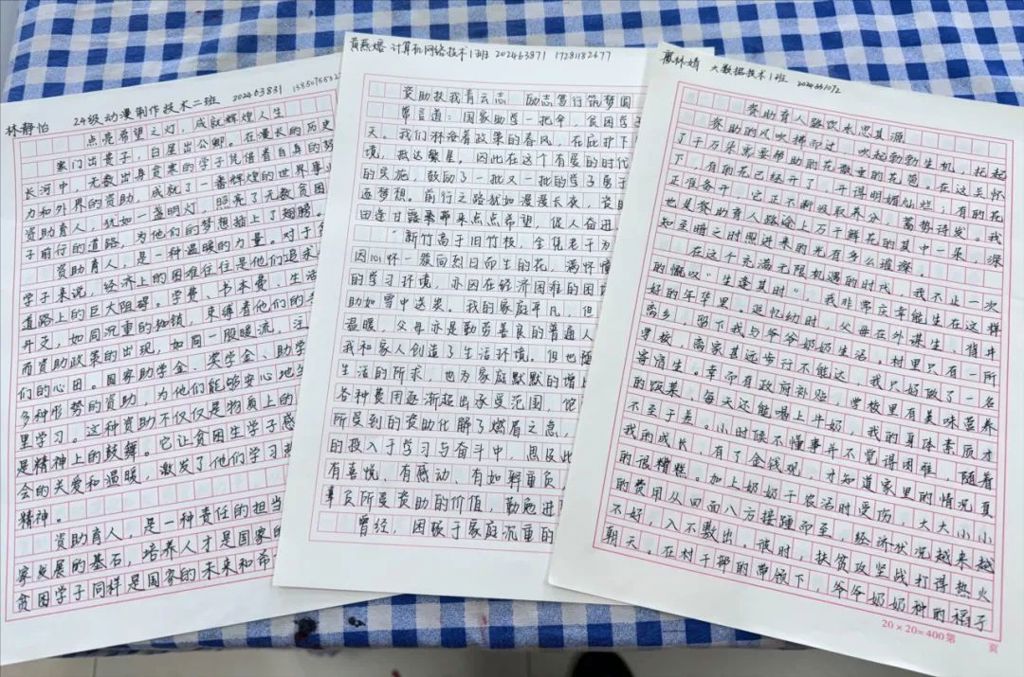 林静怡 24级动漫制作技术二班 202463831
点亮希望之灯，成就辉煌人生
寒门出贵子，白屋出公卿。在漫长的历史
长河中，无数出身贫寒的学子凭借着自身的努
力和外界的资助，成就了一番辉煌的世界事业
资助育人，犹如一盏明灯，照亮了无数贫困
子前行的道路，为他们的梦想插上了翅膀。
资助育人，是一种温暖的力量。对于
学子来说，经济上的困难往往是他们追求
道路上的巨大阻碍。学费、书本费、生活
开支，如同沉重的枷锁，束缚着他们的
而资助政策的出现，如同一股暖流，注
们的心田。国家助学金、奖学金、助学
多种形势的资助，为他们能够安心地
里学习。这种资助不仅仅是物质上的
是精神上的鼓舞。它让贫困生学子感
会的关爱和温暖，激发了他们学习
精神。
资助育人，是一种责任的担当
家点展的基石，培养人才是国家的
贫困学子同样是国家的未来和希
黄燕熔 计算机网络技术1班 202463871 17281182677
资助扶我青云志 励志笃行筑梦圆
常言道：国家助学一把伞，贫困学子
天。我们沐浴着政策的春风，在庇护下
境，抵达繁星，因此在这个有爱的时代
的实施，鼓励了一批又一批的学子勇于
逐梦想。前行之路犹如漫漫长夜，资助
田逢甘露来带来点点希望，促人奋进
“新竹高于旧竹枝，全凭老干为
因101怀一簇向烈日而生的花，满怀憧
的学习环境，亦因在经济困难的困
助如雪中送炭。我的家庭平凡，但
温暖，父母亦是勤劳善良的普通人
我和家人创造了生活环境。但也随
生活的所求，也为家庭默默的增上
各种费用逐渐超出承受范围，
所受到的资助化解了燃眉之急，
的投入于学习与奋斗中，
有喜悦、有感动、有如释重负
辜负所受资助的价值，勤勉进
曾经，困顿于家庭沉重的
廖林婧 大数据技术1班
资助育人路饮水思其源
资助的风吹拂而过，吹起勃勃生机，托起
了千万朵需要帮助的花骸重的花苞。在这关怀
下，有的花已经开了，开得明媚灿烂；有的花
正准备开，它正不断汲取养分，蓄势待发。我
也是资助育人路途上万千鲜花的其中一朵，深
知至暗之时照进来的光有多么璀璨。
在这个充满无限机遇的时代，我不止一次
的慨叹“生逢其时”，我非常庆幸能生在这样
好的年华里。追忆幼时，父母在外谋生，背井
离乡，留下我与爷爷奶奶生活。村里只有一所
学校，离家甚远步行不能达，我只好做了一名
寄宿生。幸而有政府补贴，学校里有美味营养
的饭菜，每天还能喝上牛奶，我的身体素质才
不至于差。小时候不懂事并不觉得困难，随着
我的成长，有了金钱观，才知道家里的情况真
的很糟糕。加上奶奶干农活时受伤，大大小小
的费用从四面八方接踵而至，经济状况越来越
不好，入不敷出。彼时，扶贫攻坚战打得热火
朝天。在村干部的带领下，爷爷奶奶种的稻子
20×20=400第 页